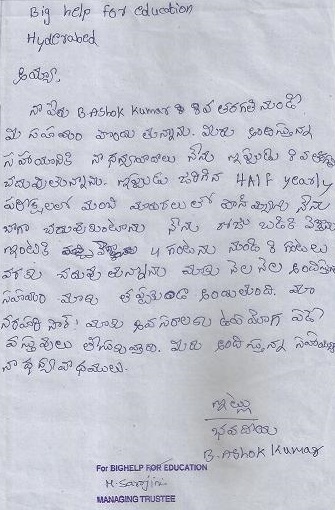 Big help for education
Hyderabad
అయ్యా,
నా పేరు B.Ashok Kumar 8 వ తరగతి నుండి
మీ సహాయం పొందు తున్నాను. మీరు అందిస్తున్న
సహాయానికి నా ధన్యవాదాలు నేను ఇప్పుడు 8 వ తరగతి
చదువుతున్నాను. ఇప్పుడు జరిగిన HAlF yearly
పరీక్షలలో మంచి మార్కులతో పాస్ నేను
బాగా చదువుకుంటాను నేను రోజు బడికి
ఇంటికి 4 గంటల నుండి 8 గంటలు
వరకు చదువు తున్నాను మాకు నెల నెల అందిస్తూ
సహాయం మాకు అందుతుంది. మా
నరహరి సార్ మాకు అవసరాలకు ఉపయోగ పడే
వస్తువులు తెచ్చారు. మీరు అందిస్తున్న సహాయం
నా ధన్యవాదములు.
ఇట్లు
భవదీయ
B. Ashok Kumar
For BIGHELP FOR EDUCATION
M. Sarojini
MANAGING TRUSTEE